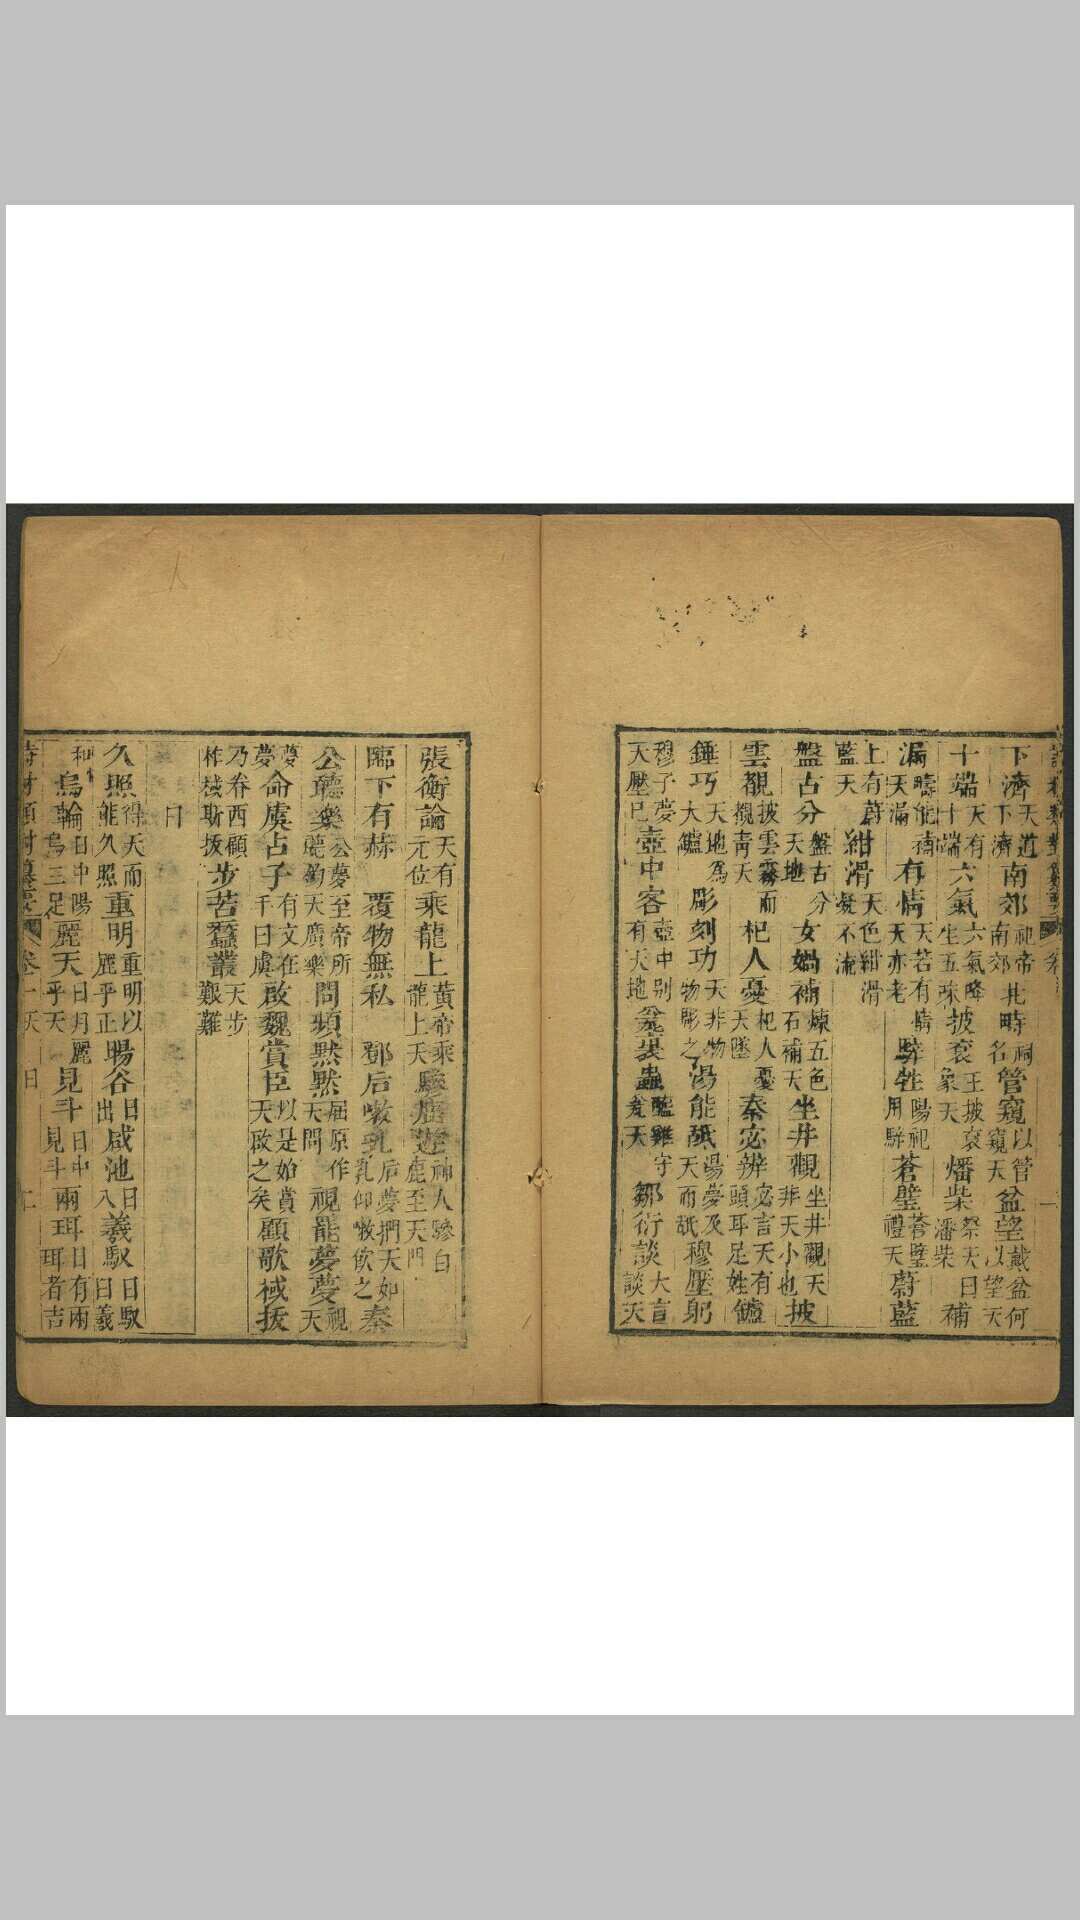 下濟天道下濟南郊祀帝南郊北畤祠名管窺以管窺天盆望戴盆何以望天
十端天有十端六氣六氣降生五味披袞王披袞象天燔柴祭天曰燔柴補
漏疇能補天漏有情天若有情天亦老騂牲陽祀用騂蒼璧蒼璧禮天蔚藍
上有蔚藍天紺滑天色紺滑凝不流
盤古分盤古分天地女媧補煉五色石補天坐井觀坐井觀天非天小也披
雲覩披雲霧而覩青天杞人憂杞人憂天墜秦宓辨宓言天有頭耳足姓鑪
錘巧天地為大鑪彫刻功天非物物彫之湯能䑛湯夢及天而䑛穆壓躬
穆子夢天壓已壺中客壺中別有天地瓮裝蟲醯雞守瓮天鄒衍談大言談天
張衡論天有元位乘龍上黃帝乘龍上天驂鹿遊神人驂白鹿至天門
臨下有赫 覆物無私 鄧后嗽乳后夢捫天如乳仰嗽飲之秦
公聽樂公夢至帝所聽鈞天廣樂問頊默默屈原作天問視龍夢夢視天
夢夢命虞占子有文在手曰虞啟魏賞臣以是始賞天啟之矣顧歌棫拔
乃眷西顧柞棫斯拔步苦蠶叢天步艱難
日
久照得天而能久照重明重明以麗乎正暘谷日出咸池日入羲馭日馭曰羲
和烏輪日中陽烏三足麗天日月麗乎天見斗日中見斗兩珥日有兩珥者吉